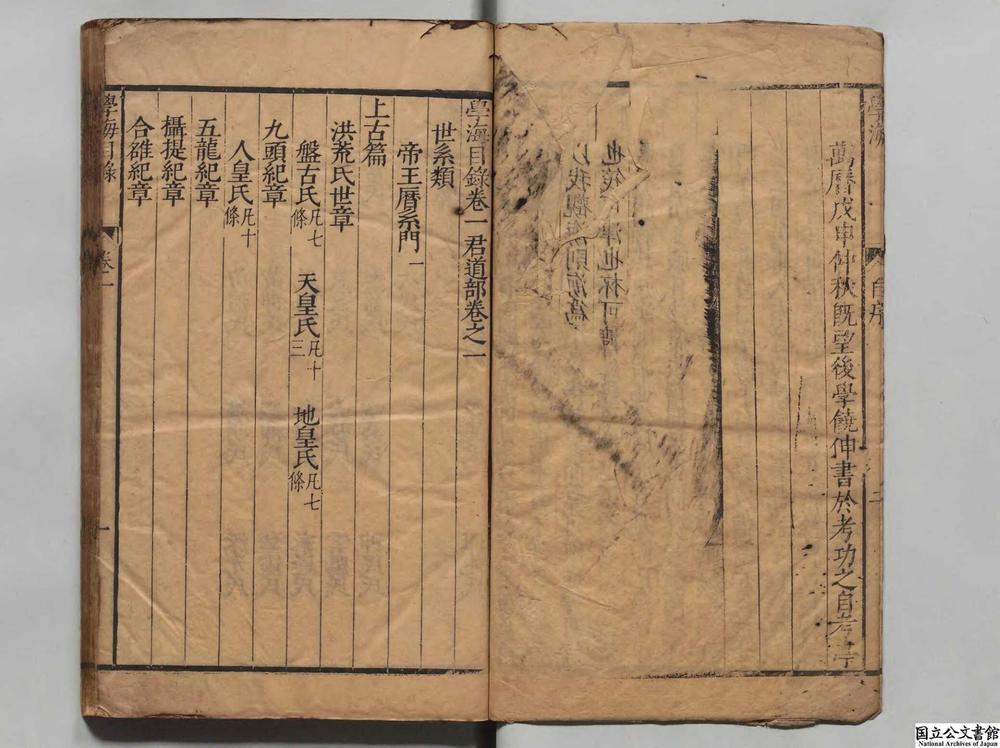 學海
自序
二
萬曆戊申仲秋既望後學饒伸書於考功之自考亭
學海目錄卷一 君道部卷之一
世系類
帝王曆系門一
上古篇
洪荒氏世章
盤古氏凡七條 天皇氏凡十三 地皇氏凡七條
九頭紀章
人皇氏凡十條
五龍紀章
攝提紀章
合雒紀章
學海目錄
卷一
一
国立公文書館
National Archives of Japan